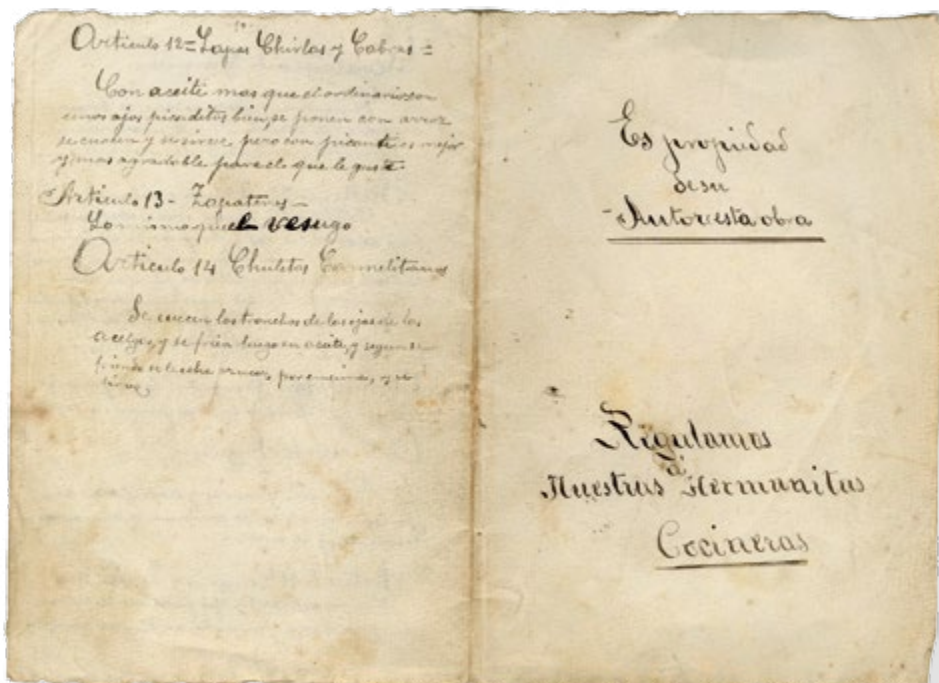 Articulo 12 = Lapas Chirlas y Cabras =
Con aceite mas que el ordinario con
unos ajos picaditos bien, se ponen con arroz
se cuecen y se sirve pero con picante es mejor
y mas agradable para el que le guste.
Articulo 13 - Zapateros -
Lo mismo que el vesugo
Articulo 14 Chuletas Carmelitanas
Se cuecen los tronchos de las ojas de las
acelgas, y se frien luego en aceite, y segun se
friendo se le echa azucar por encima, y se
sirve.
Es propiedad
de su
Autor esta obra
Regulamos
á
Nuestras Hermanitas
Cocineras